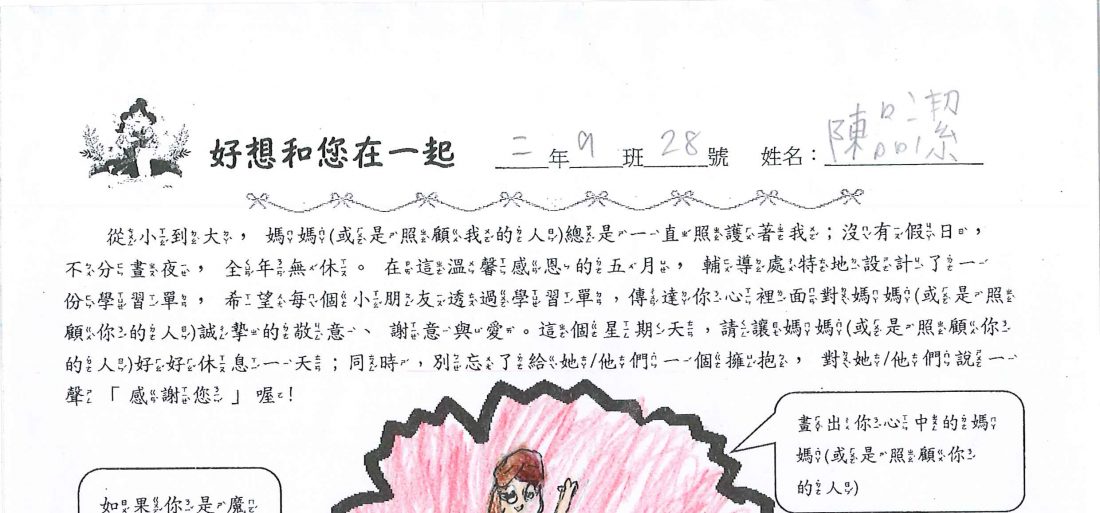 好想和您在一起 二年9班28號 姓名：陳品潔
從小到大，媽媽(或是照顧我的人)總是一直照護著我；沒有假日，
不分晝夜，全年無休。在這溫馨感恩的五月，輔導處特地設計了一
份學習單，希望每個小朋友透過學習單，傳達你心裡面對媽媽(或是照
顧你的人)誠摯的敬意、謝意與愛。這個星期天，請讓媽媽(或是照顧你
的人)好好休息一天；同時，別忘了給她/他們一個擁抱，對她/他們說一
聲「感謝您」喔!
畫出你心中的媽
媽(或是照顧你
的人)
如果你是魔